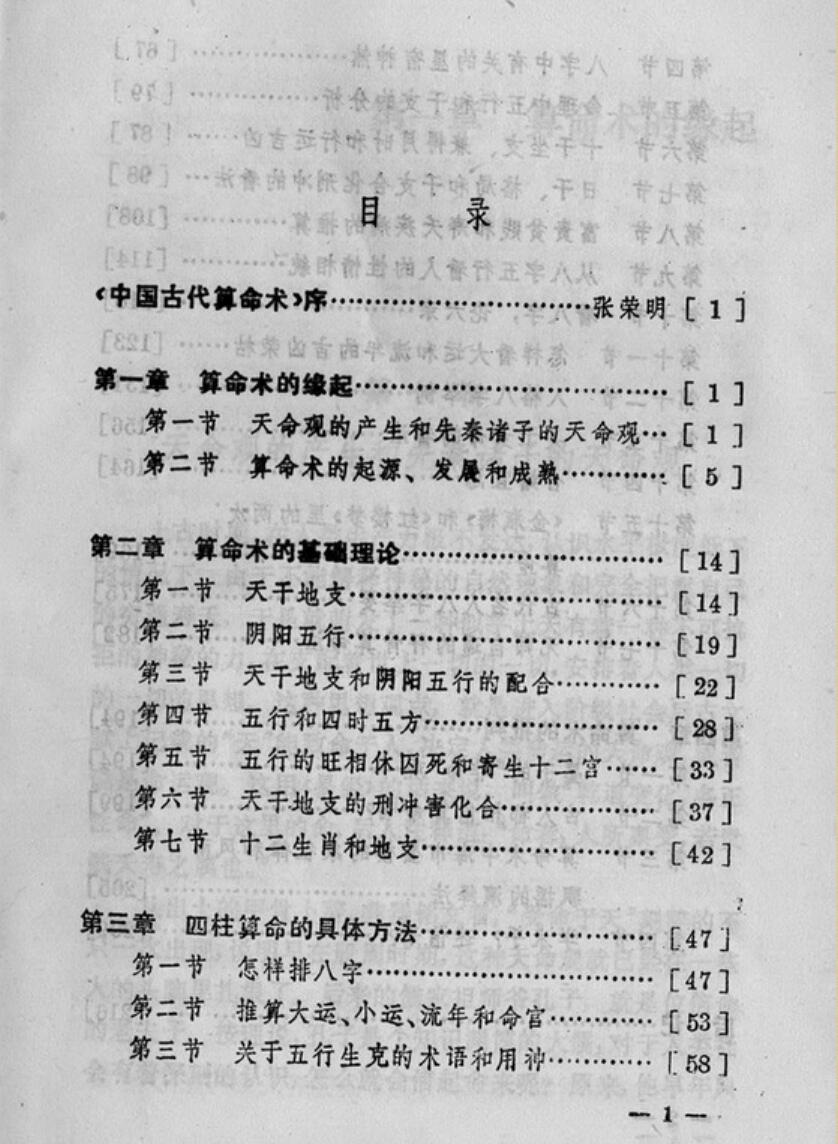 目 录
《中国古代算命术》序……………………张荣明 [ 1 ]
第一章 算命术的缘起………………………… [ 1 ]
第一节 天命观的产生和先秦诸子的天命观… [ 1 ]
第二节 算命术的起源、发展和成熟………… [ 5 ]
第二章 算命术的基础理论…………………… [14]
第一节 天干地支………………………… [14]
第二节 阴阳五行………………………… [19]
第三节 天干地支和阴阳五行的配合………… [22]
第四节 五行和四时五方…………………… [28]
第五节 五行的旺相休囚死和寄生十二宫…… [33]
第六节 天干地支的刑冲害化合…………… [37]
第七节 十二生肖和地支…………………… [42]
第三章 四柱算命的具体方法………………… [47]
第一节 怎样排八字……………………… [47]
第二节 推算大运、小运、流年和命宫………… [53]
第三节 关于五行生克的术语和用神………… [58]
— 1 —